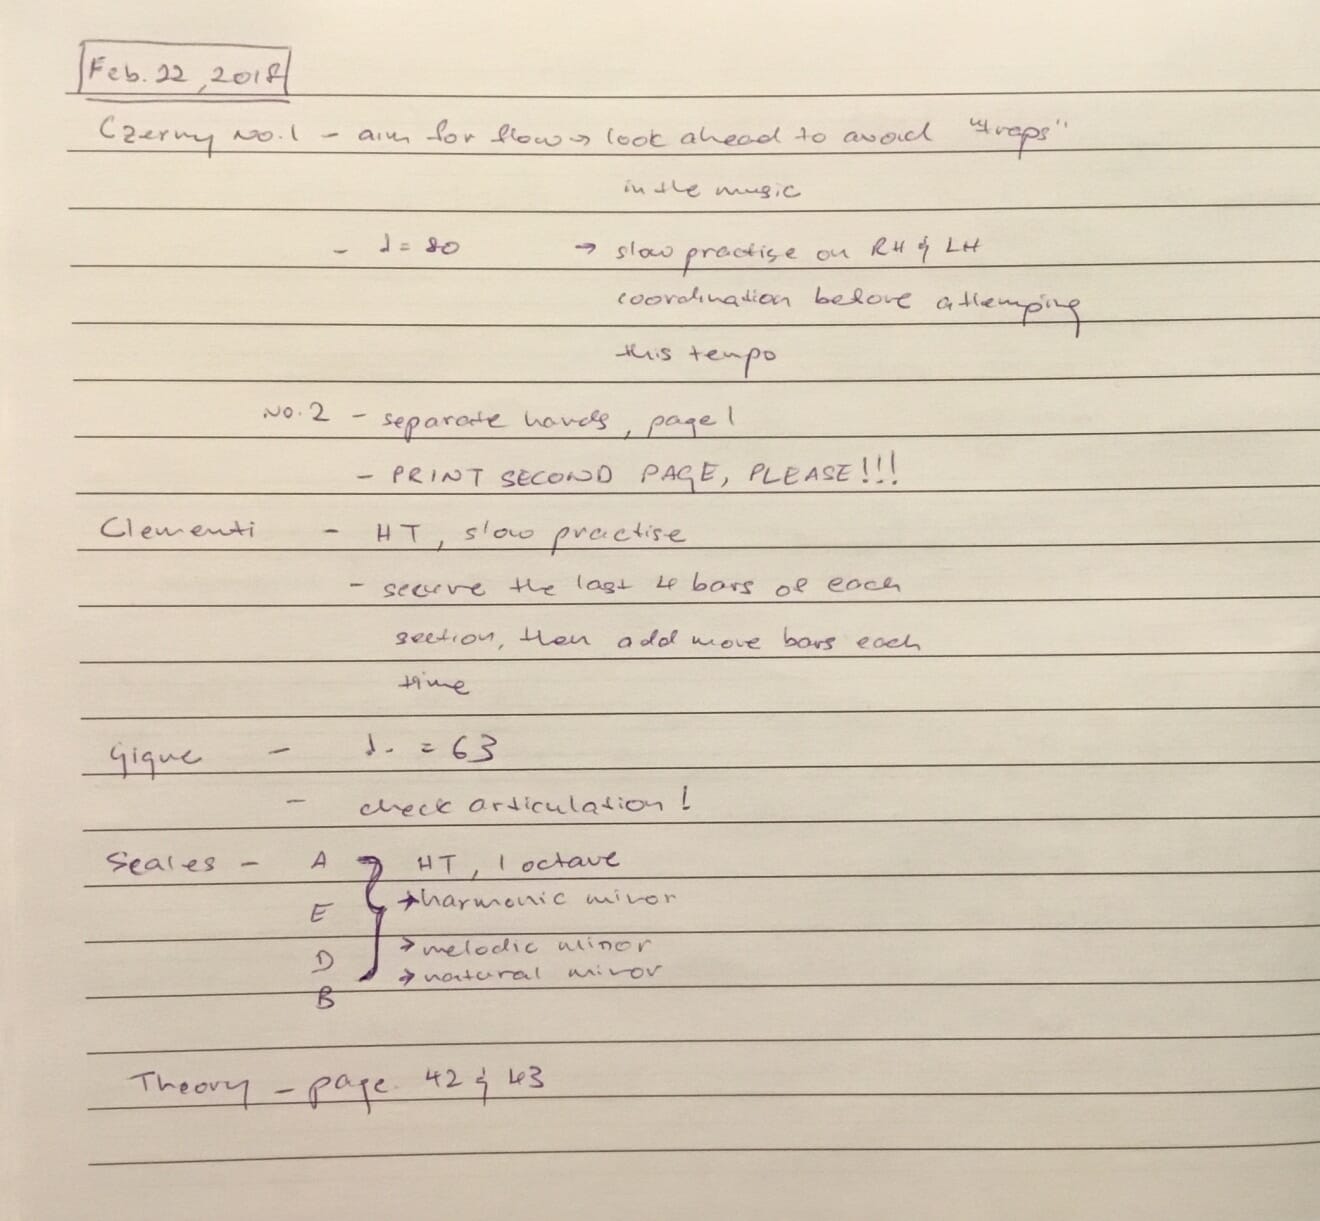 Feb. 22, 2018
Czerny No. 1 - aim for flow → look ahead to avoid "traps"
in the music
- ♩ = 80 → slow practise on RH & LH
coordination before attemping
this tempo
No. 2 - separate hands, page 1
- PRINT SECOND PAGE, PLEASE!!!
Clementi - HT, slow practise
- secure the last 4 bars of each
section, then add more bars each
time
Gigue - ♩. = 63
- check articulation!
Scales - A HT, 1 octave
E → harmonic minor
D → melodic minor
→ natural minor
B
Theory - page. 42 & 43